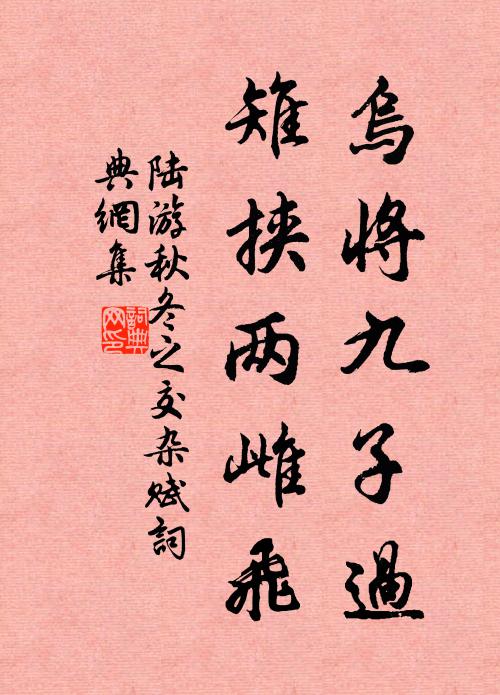 烏將九子過
雉挟两雌飛
陆游秋冬之交杂赋詞
典網集
詞典
网印